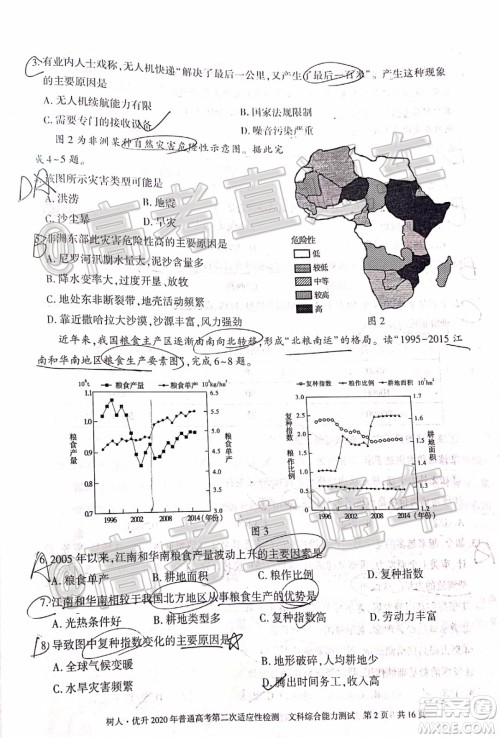 3.有业内人士戏称,无人机快递“解决了最后一公里,又产生了最后一百米”。产生这种现象
的主要原因是
A. 无人机续航能力有限 B. 国家法规限制
C. 需要专门的接收设备 D. 噪音污染严重
图2为非洲某种自然灾害危险性示意图。据此完
成4~5题。
4.该图所示灾害类型可能是
A. 洪涝 B. 地震
C. 沙尘暴 D. 旱灾
5.非洲东部此灾害危险性高的主要原因是
A. 尼罗河汛期水量大,泥沙淤积
B. 降水变率大,用水量大
C. 地处东非断裂带,地壳活动频繁
D. 靠近撒哈拉大沙漠,沙源丰富,风力强劲
危险性
低
较低
中等
较高
高
图2
近年来,我国粮食主产区逐渐由南向北转移,形成“北粮南运”的格局。读“1995-2015江
南和华南地区粮食生产要素图”,完成6~8题。
粮食产量 粮食单产
粮食产量
1.1
1.0
0.9
0.8
0.7
粮食单产
5.5
5.0
4.5
4.0
3.5
3.0
1996 2002 2008 2014(年份)
复种指数 粮作比例 耕地面积
复种指数
粮作比例
3
2.5
2
1.5
1
0.5
0
耕地面积
1996 2002 2008 2014(年份)
图3
6. 2005年以来,江南和华南粮食产量波动上升的主要因素是
A. 粮食单产 B. 耕地面积 C. 粮作比例 D. 复种指数
7. 江南和华南相较于我国北方地区从事粮食生产的优势是
A. 光热条件好 B. 耕地类型多 C. 复种指数高 D. 劳动力丰富
8. 导致图中复种指数变化的主要原因是
A. 全球气候变暖 B. 人均耕地少
C. 种植制度改变 D. 人地矛盾大
树人·优升2020年普通高考第二次适应性检测 文科综合能力测试 第2页 共16页
@高考直通车
@高考直通车